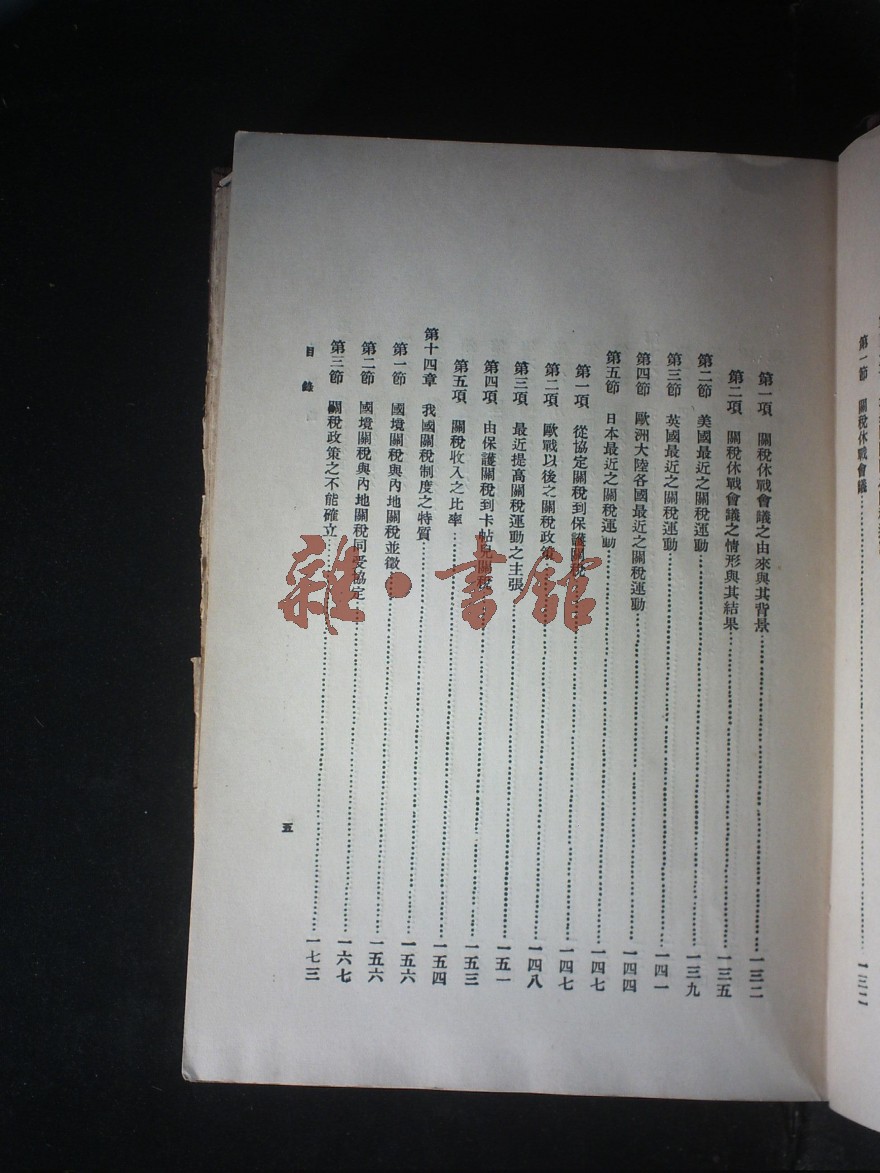 第一節 關稅休戰會議……一三二
第一項 關稅休戰會議之由來與其背景……一三二
第二項 關稅休戰會議之情形與其結果……一三五
第二節 美國最近之關稅運動……一三九
第三節 英國最近之關稅運動……一四一
第四節 歐洲大陸各國最近之關稅運動……一四四
第五節 日本最近之關稅運動……一四七
第一項 從協定關稅到保護關稅……一四七
第二項 歐戰以後之關稅政策……一四八
第三項 最近提高關稅運動之主張……一五一
第四項 由保護關稅到卡帖兒關稅……一五三
第五項 關稅收入之比率……一五四
第十四章 我國關稅制度之特質……一五六
第一節 國境關稅與內地關稅並徵……一五六
第二節 國境關稅與內地關稅同受協定……一六七
第三節 關稅政策之不能確立……一七三
目錄
五
雜·書館